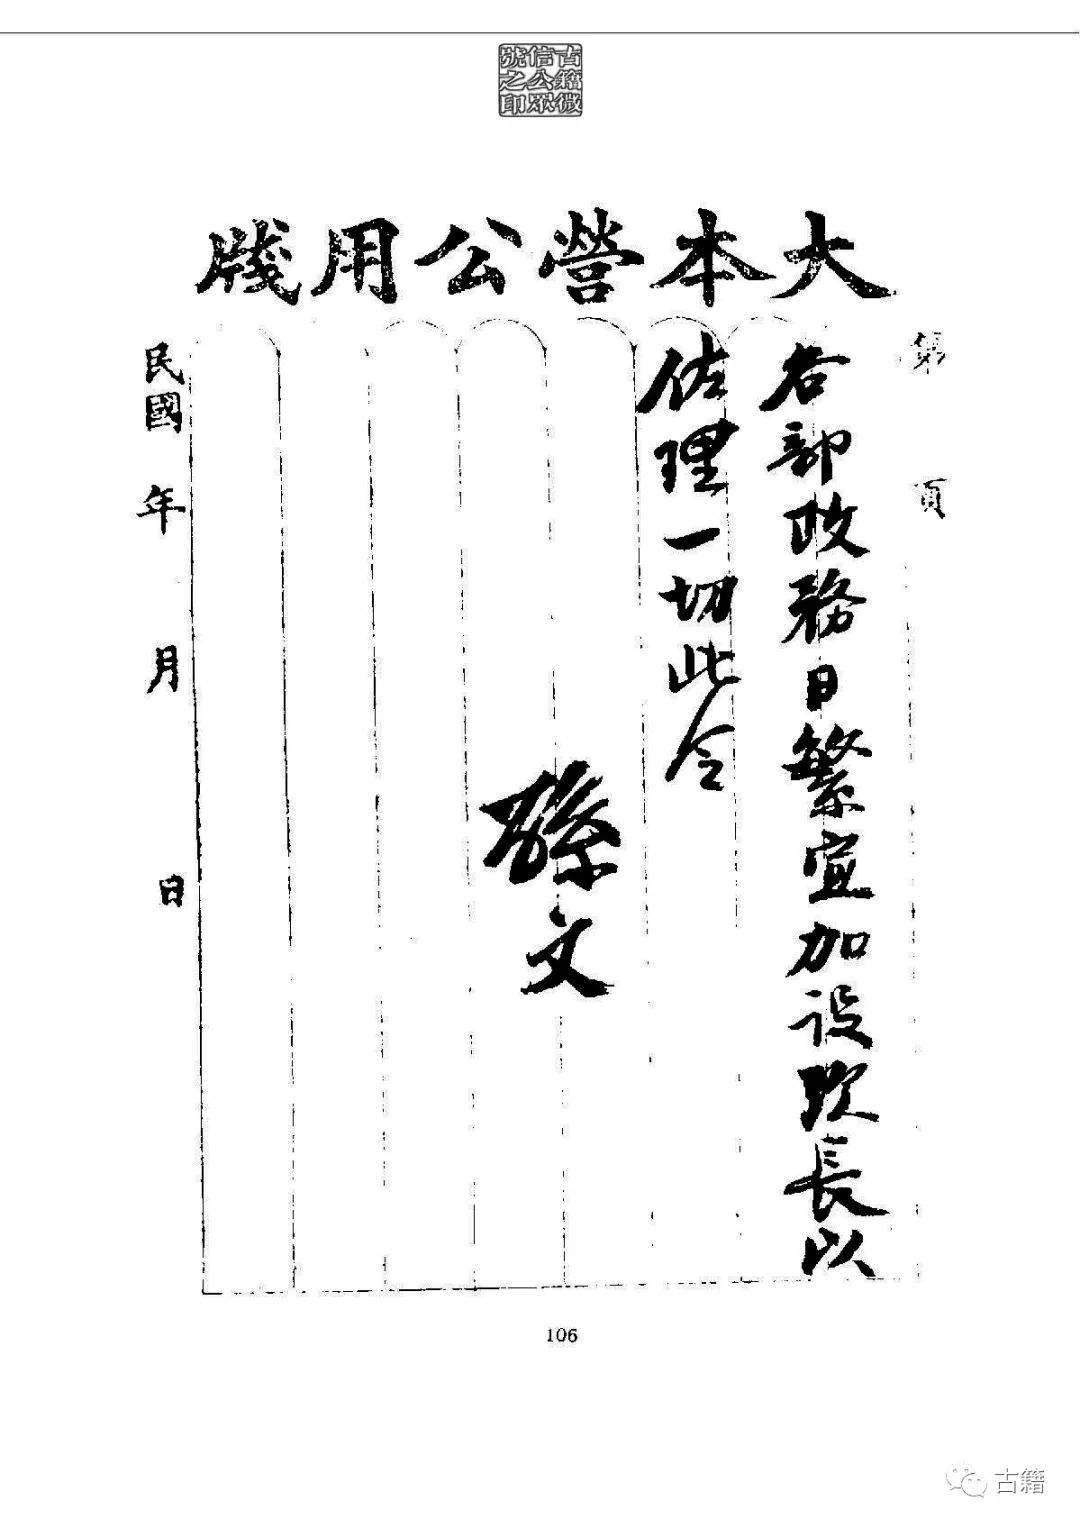 古籍微
信公眾
號之印
大本營公用牋
第 頁
各部政務日繁宜加設次長以
佐理一切此令
孫文
民國 年 月 日
106
古籍